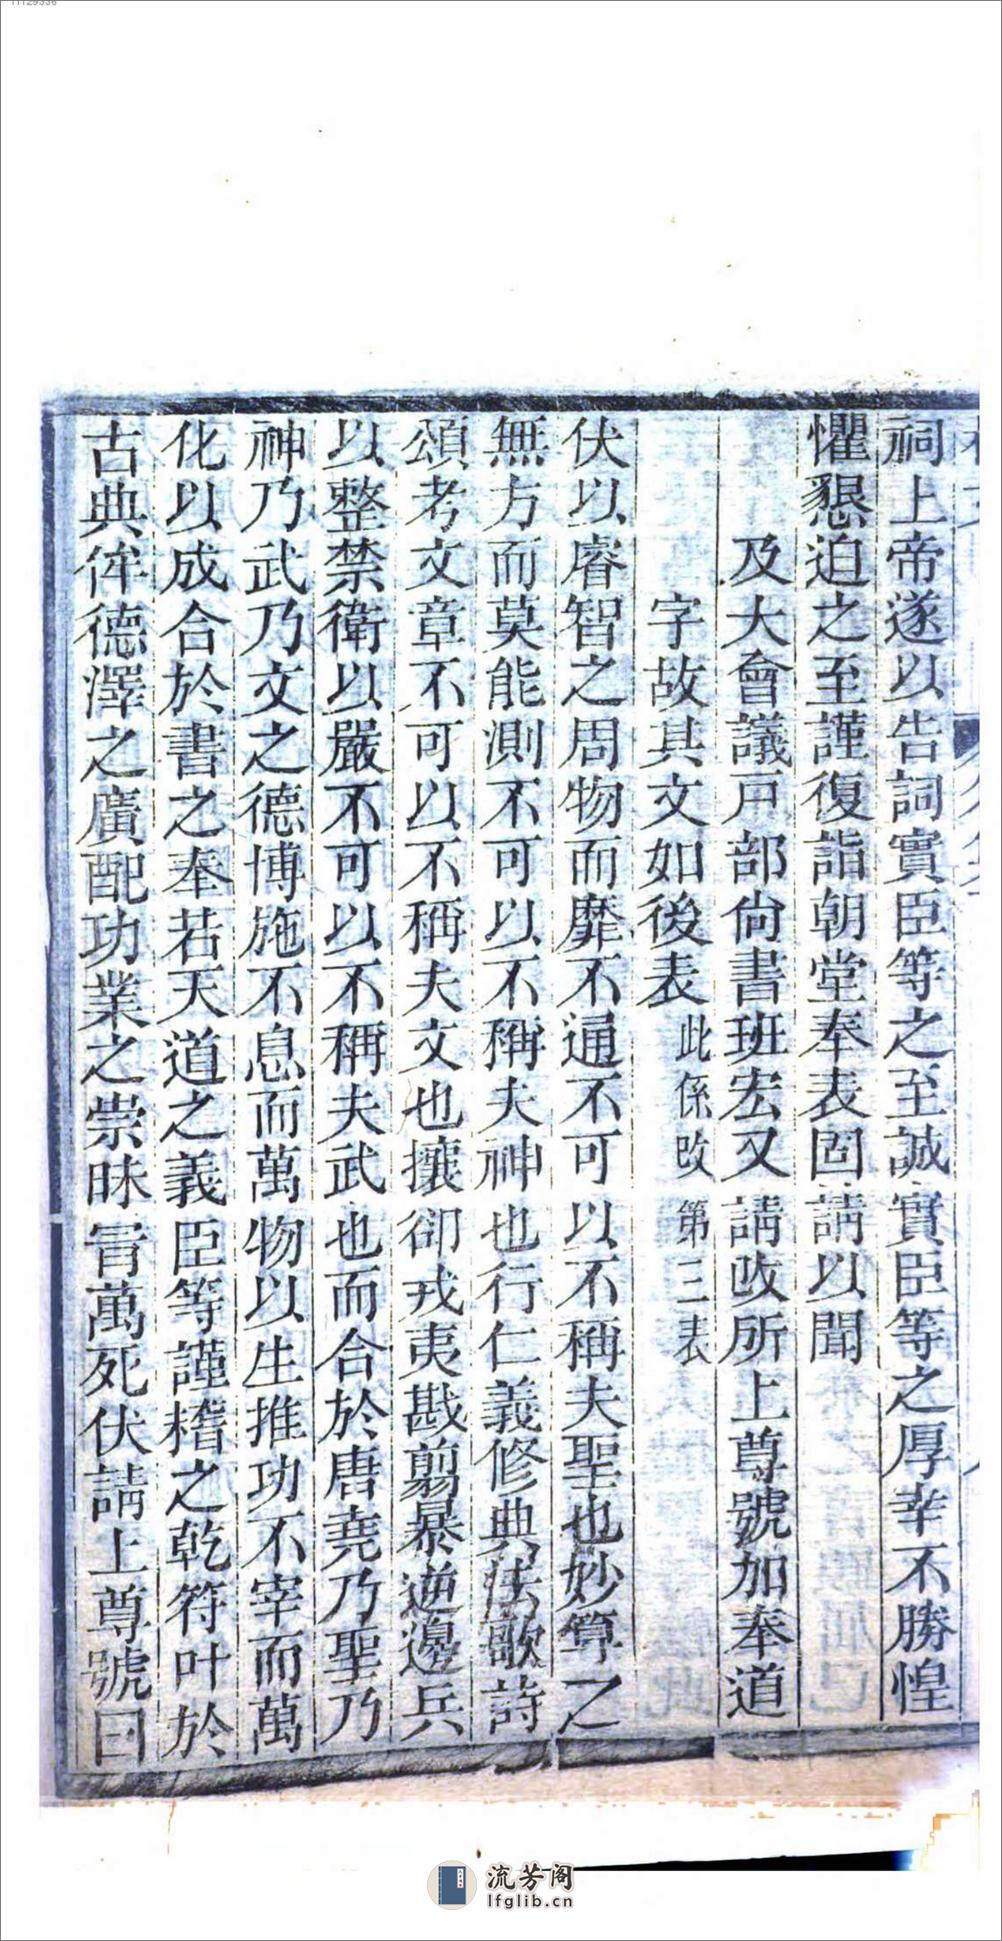 祠上帝遂以告詞實臣等之至誠實臣等之厚幸不勝惶
懼懇迫之至謹復詣朝堂奉表固請以聞
及大會議戸部尙書班宏又請改所上尊號加奉道
字故其文如後表此係改第三表
伏以睿智之周物而靡不通不可以不稱夫聖也妙算之
無方而莫能測不可以不稱夫神也行仁義修典法歌詩
頌考文章不可以不稱夫文也攘卻戎夷戡翦暴逆邊兵
以整禁衛以嚴不可以不稱夫武也而合於唐堯乃聖乃
神乃武乃文之德博施不息而萬物以生推功不宰而萬
化以成合於書之奉若天道之義臣等謹稽之乾符叶於
古典侔德澤之廣配功業之崇昧冒萬死伏請上尊號曰
流芳阁
lfglib.cn